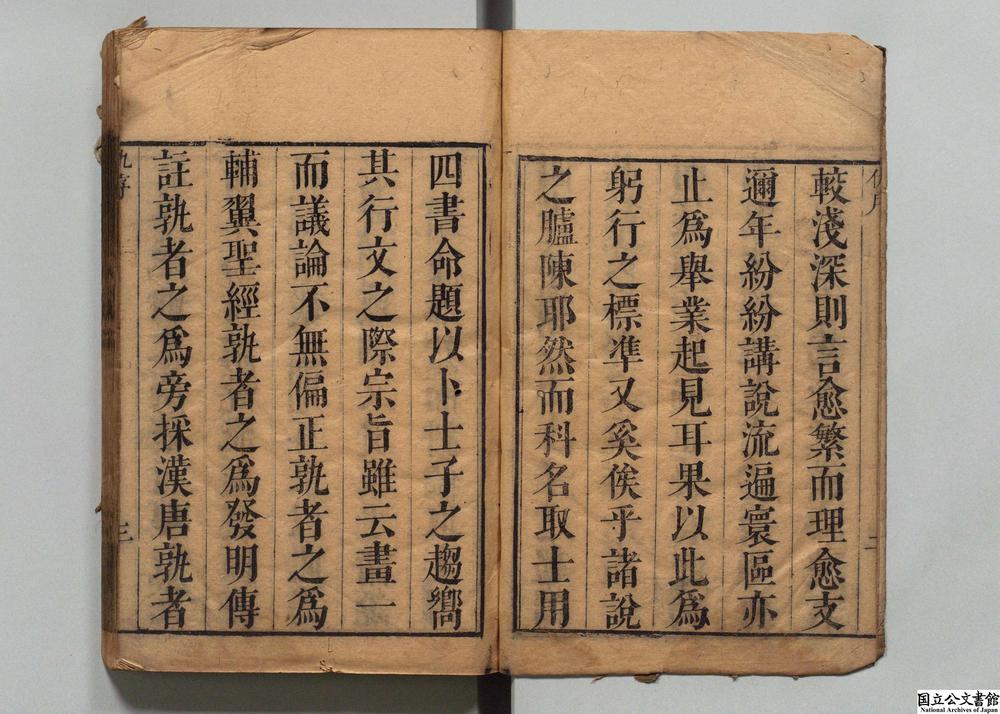 較淺深則言愈繁而理愈支
邇年紛紛講說流遍寰區亦
止爲舉業起見耳果以此爲
躬行之標凖又奚俟乎諸說
之臚陳耶然而科名取士用
四書命題以卜士子之趨嚮
其行文之際宗旨雖云畫一
而議論不無偏正孰者之爲
輔翼聖經孰者之爲發明傳
註孰者之爲旁採漢唐孰者
三
国立公文書館
National Archives of Japan